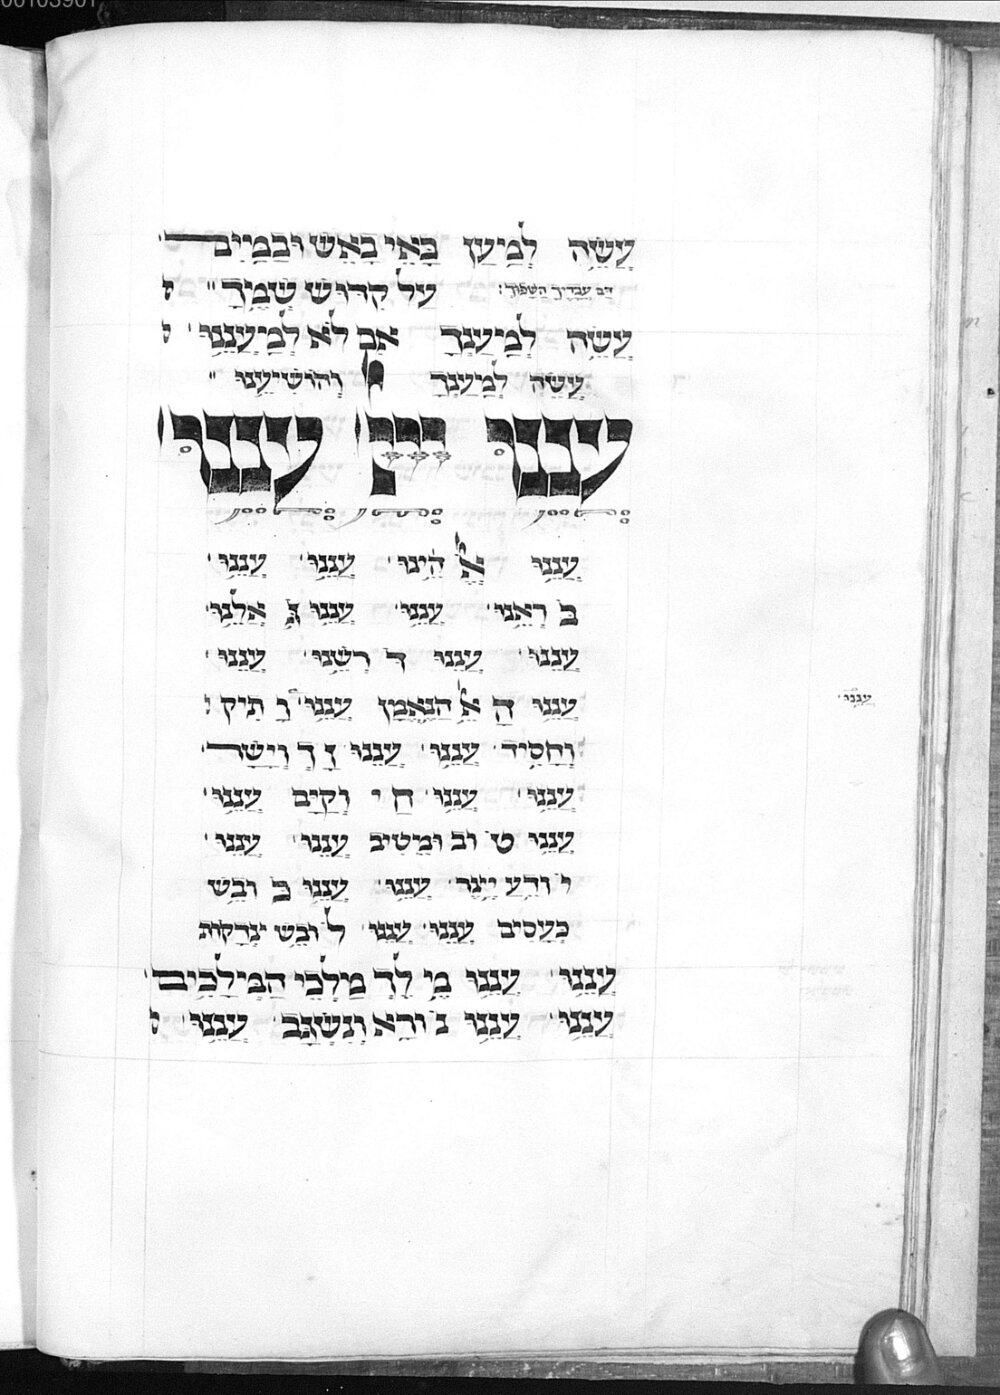 עֲשֵׂה לְמַעַן בָּאֵי בָאֵשׁ וּבַמַּיִם
דם עבדיך השפוך: עַל קִדּוּשׁ שְׁמֶךָ
עֲשֵׂה לְמַעַנְךָ אִם לֹא לְמַעֲנֵנוּ
עֲשֵׂה לְמַעַנְךָ וְהוֹשִׁיעֵנוּ
עֲנֵנוּ עֲנֵנוּ
עֲנֵנוּ אֱלֹהֵינוּ עֲנֵנוּ עֲנֵנוּ
בּוֹרְאֵנוּ עֲנֵנוּ עֲנֵנוּ גּוֹאֲלֵנוּ
עֲנֵנוּ עֲנֵנוּ דּוֹרְשֵׁנוּ עֲנֵנוּ
עֲנֵנוּ הָאֵל הַנֶּאֱמָן עֲנֵנוּ וָתִיק
וְחָסִיד עֲנֵנוּ עֲנֵנוּ זַךְ וְיָשָׁר
עֲנֵנוּ עֲנֵנוּ חַי וְקַיָּם עֲנֵנוּ
עֲנֵנוּ טוֹב וּמֵטִיב עֲנֵנוּ עֲנֵנוּ
יוֹדֵעַ יֵצֶר עֲנֵנוּ עֲנֵנוּ כּוֹבֵשׁ
כְּעָסִים עֲנֵנוּ עֲנֵנוּ לוֹבֵשׁ צְדָקוֹת
עֲנֵנוּ עֲנֵנוּ מֶלֶךְ מַלְכֵי הַמְּלָכִים
עֲנֵנוּ עֲנֵנוּ נוֹרָא וְנִשְׂגָּב עֲנֵנוּ
עֲנֵנוּ